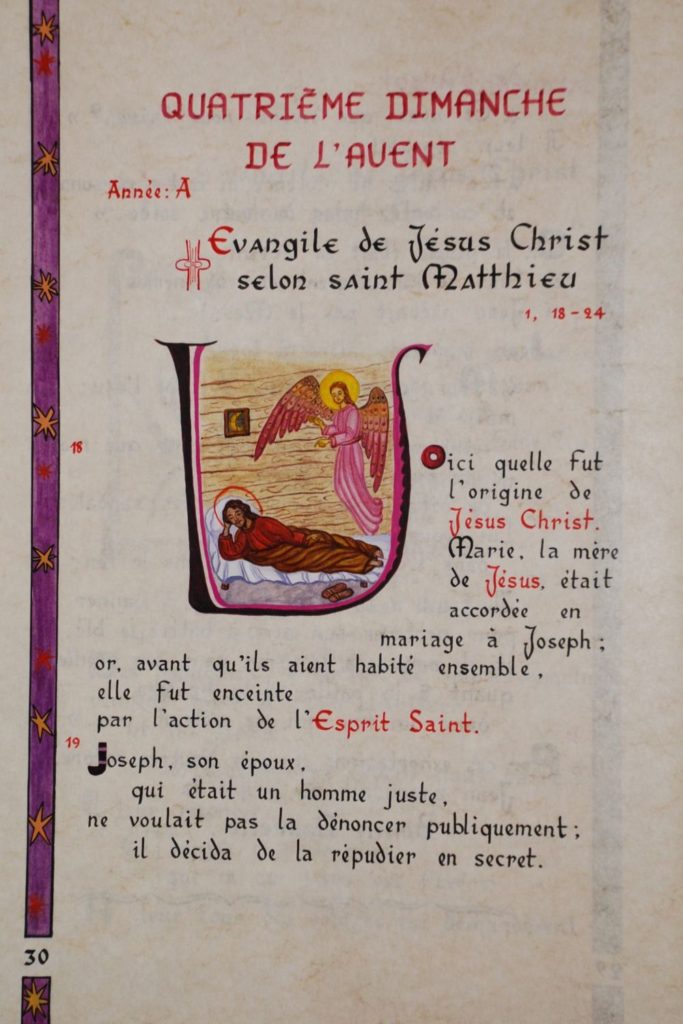 QUATRIÈME DIMANCHE
DE L'AVENT
Année: A
Evangile de Jésus Christ
selon saint Matthieu
1, 18-24
18
Voici quelle fut
l'origine de
Jésus Christ.
Marie, la mère
de Jésus, était
accordée en
mariage à Joseph ;
or, avant qu'ils aient habité ensemble,
elle fut enceinte
par l'action de l'Esprit Saint.
19
Joseph, son époux,
qui était un homme juste,
ne voulait pas la dénoncer publiquement ;
il décida de la répudier en secret.
30